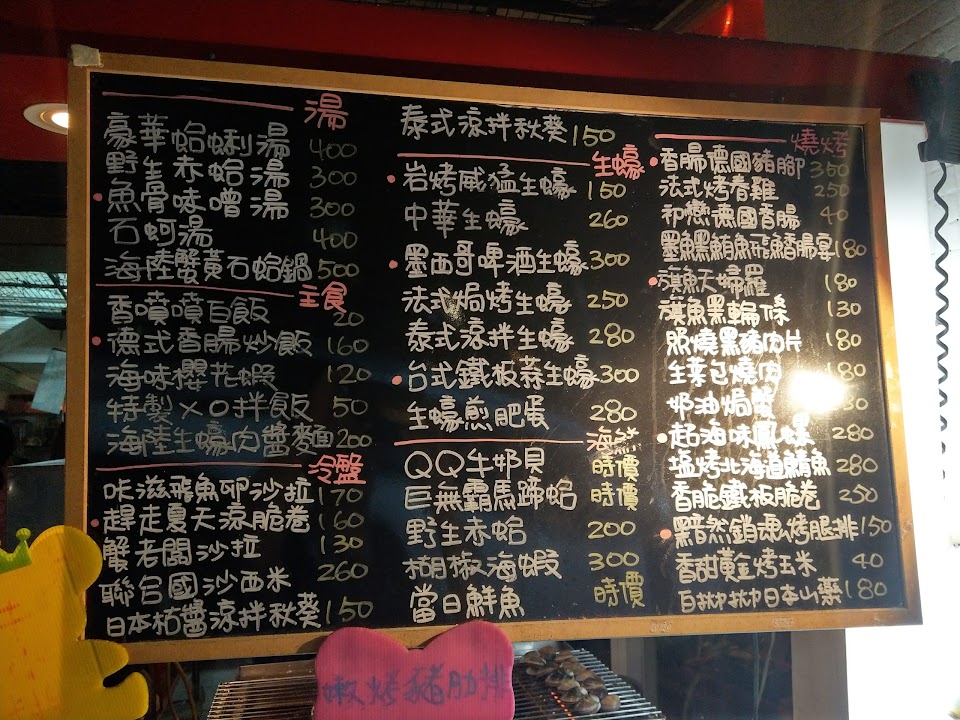 湯
豪華蛤蜊湯 400
野生赤蛤湯 300
魚骨味噌湯 300
石蚵湯 400
海陸蟹黃石蛤鍋 500
主食
香噴噴白飯 20
德式香腸炒飯 160
海味櫻花蝦 120
特製XO拌飯 50
海陸生蠔肉醬麵 200
冷盤
咔滋飛魚卵沙拉 170
趕走夏天涼脆卷 160
蟹老闆沙拉 130
聯合國沙西米 260
日本柘醬涼拌秋葵 150
泰式涼拌秋葵 150
生蠔
岩烤威猛生蠔 150
中華生蠔 260
墨西哥啤酒生蠔 300
法式焗烤生蠔 250
泰式涼拌生蠔 280
台式鐵板蒜生蠔 300
生蠔煎肥蛋 280
海鮮
QQ牛奶貝 時價
巨無霸馬蹄蛤 時價
野生赤蛤 200
胡椒海蝦 300
當日鮮魚 時價
燒烤
香腸德國豬腳 350
法式烤春雞 250
初戀德國香腸 40
墨魚黑鮪魚飛魚香腸宴 180
旗魚天婦羅 180
旗魚黑輪條 130
照燒黑豬肉片 180
生菜包燒肉 180
奶油焗蟹
起油味鳳螺 280
塩烤北海道鯖魚 280
香脆鐵板脆卷 250
黯然銷魂烤腿排 150
香甜黃金烤玉米 40
白拋拋日本山藥 180
嫩烤豬肋排